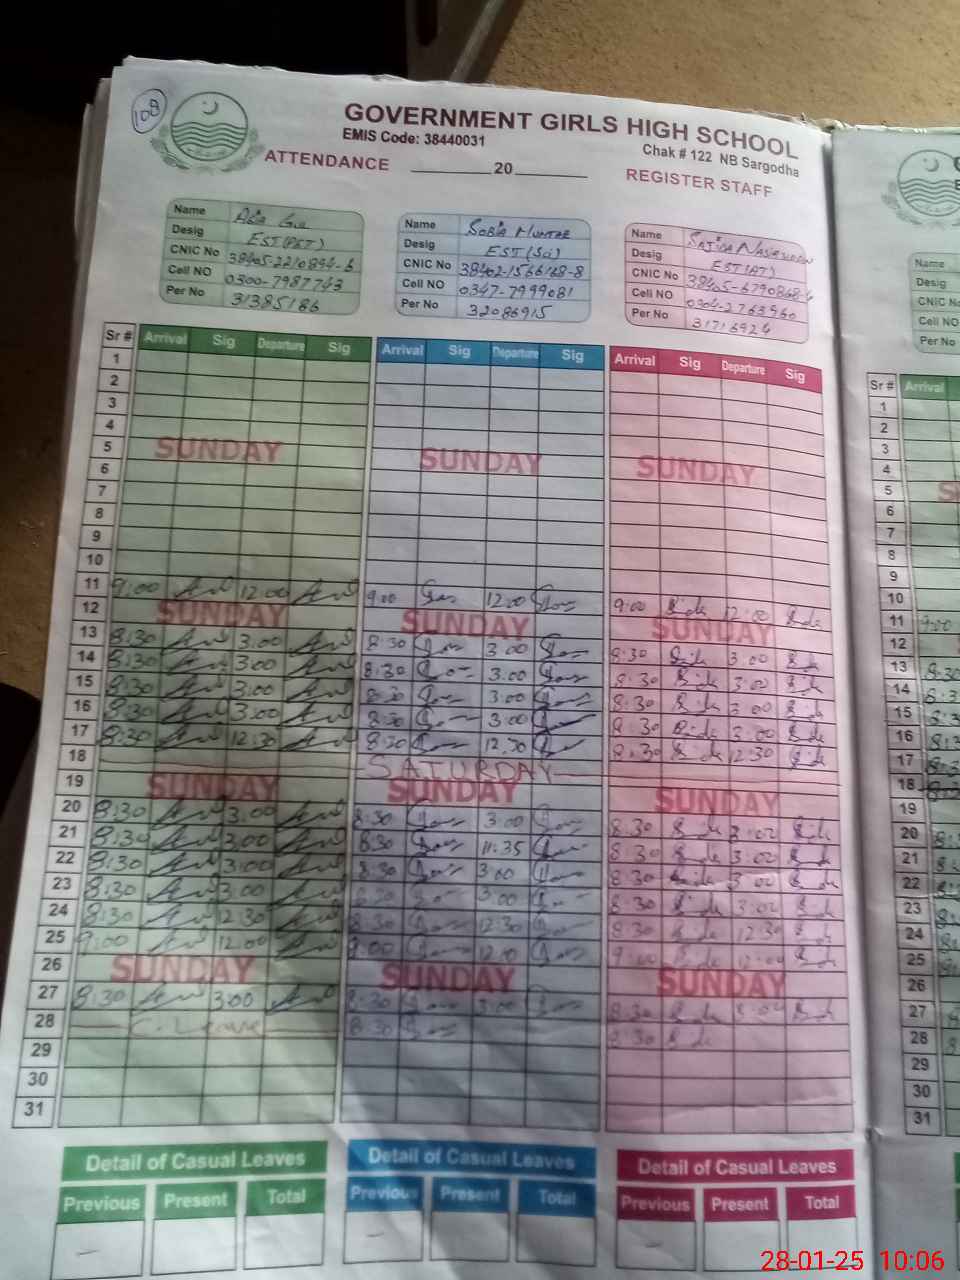 108
GOVERNMENT GIRLS HIGH SCHOOL
EMIS Code: 38440031
Chak # 122 NB Sargodha
ATTENDANCE ________20________ REGISTER STAFF
Name Asia Gul
Desig EST(PET)
CNIC No 38405-2210894-6
Cell NO 0300-7987743
Per No 31385186
Name Sobia Mumtaz
Desig EST(Sci)
CNIC No 38402-1566168-8
Cell NO 0347-7999081
Per No 32086915
Name Sajida
Desig EST(AT)
CNIC No 38405-6790868-4
Cell NO 0304-2763960
Per No 31716924
Sr # Arrival Sig Departure Sig Arrival Sig Departure Sig Arrival Sig Departure Sig
1
2
3
4
5 SUNDAY SUNDAY SUNDAY
6
7
8
9
10
11 9:00 12:00 9:00 12:00 9:00 12:00
12 SUNDAY SUNDAY SUNDAY
13 8:30 3:00 8:30 3:00 8:30 3:00
14 8:30 3:00 8:30 3:00 8:30 3:00
15 8:30 3:00 8:30 3:00 8:30 3:00
16 8:30 3:00 8:30 3:00 8:30 3:00
17 8:30 12:30 8:30 12:30 8:30 12:30
18 SATURDAY
19 SUNDAY SUNDAY SUNDAY
20 8:30 3:00 8:30 3:00 8:30 3:02
21 8:30 3:00 8:30 11:35 8:30 3:02
22 8:30 3:00 8:30 3:00 8:30 3:00
23 8:30 3:00 8:30 3:00 8:30 3:02
24 8:30 12:30 8:30 12:30 8:30 12:30
25 9:00 12:00 9:00 12:00 9:00 12:00
26 SUNDAY SUNDAY SUNDAY
27 8:30 3:00 8:30 3:00 8:30 3:02
28 C. Leave 8:30 8:30
29
30
31
Detail of Casual Leaves Detail of Casual Leaves Detail of Casual Leaves
Previous Present Total Previous Present Total Previous Present Total
Name
Desig
CNIC No
Cell NO
Per No
Sr # Arrival
1
2
3
4
5
6
7
8
9
10
11 9:00
12
13 8:30
14
15
16
17
18
19
20
21
22
23
24
25
26
27
28
29
30
31
28-01-25 10:06